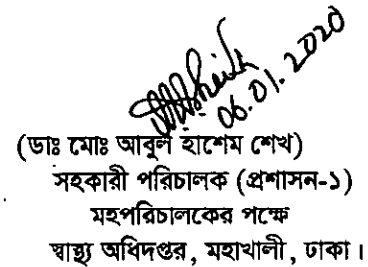 06.01.2020
(ডাঃ মোঃ আবুল হাশেম শেখ)
সহকারী পরিচালক (প্রশাসন-১)
মহপরিচালকের পক্ষে
স্বাস্থ্য অধিদপ্তর, মহাখালী, ঢাকা।